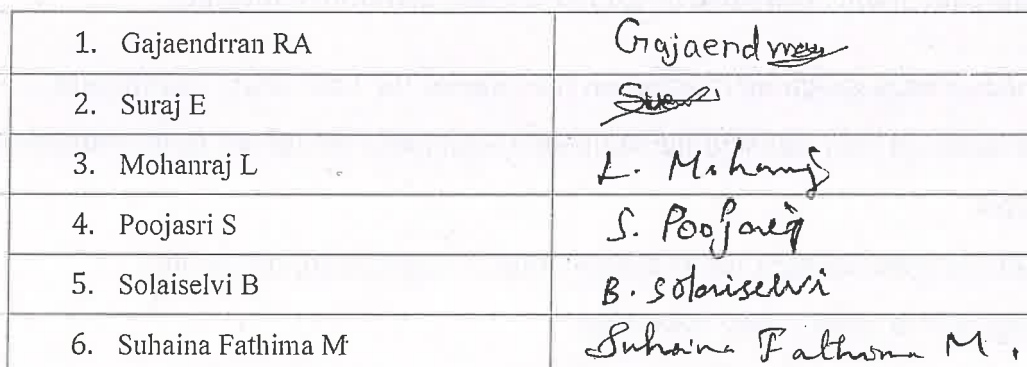 1. Gajaendrran RA Gajaend
2. Suraj E
3. Mohanraj L L. Mohanraj
4. Poojasri S S. Poojasri
5. Solaiselvi B B. Solaiselvi
6. Suhaina Fathima M Suhaina Fathima M.